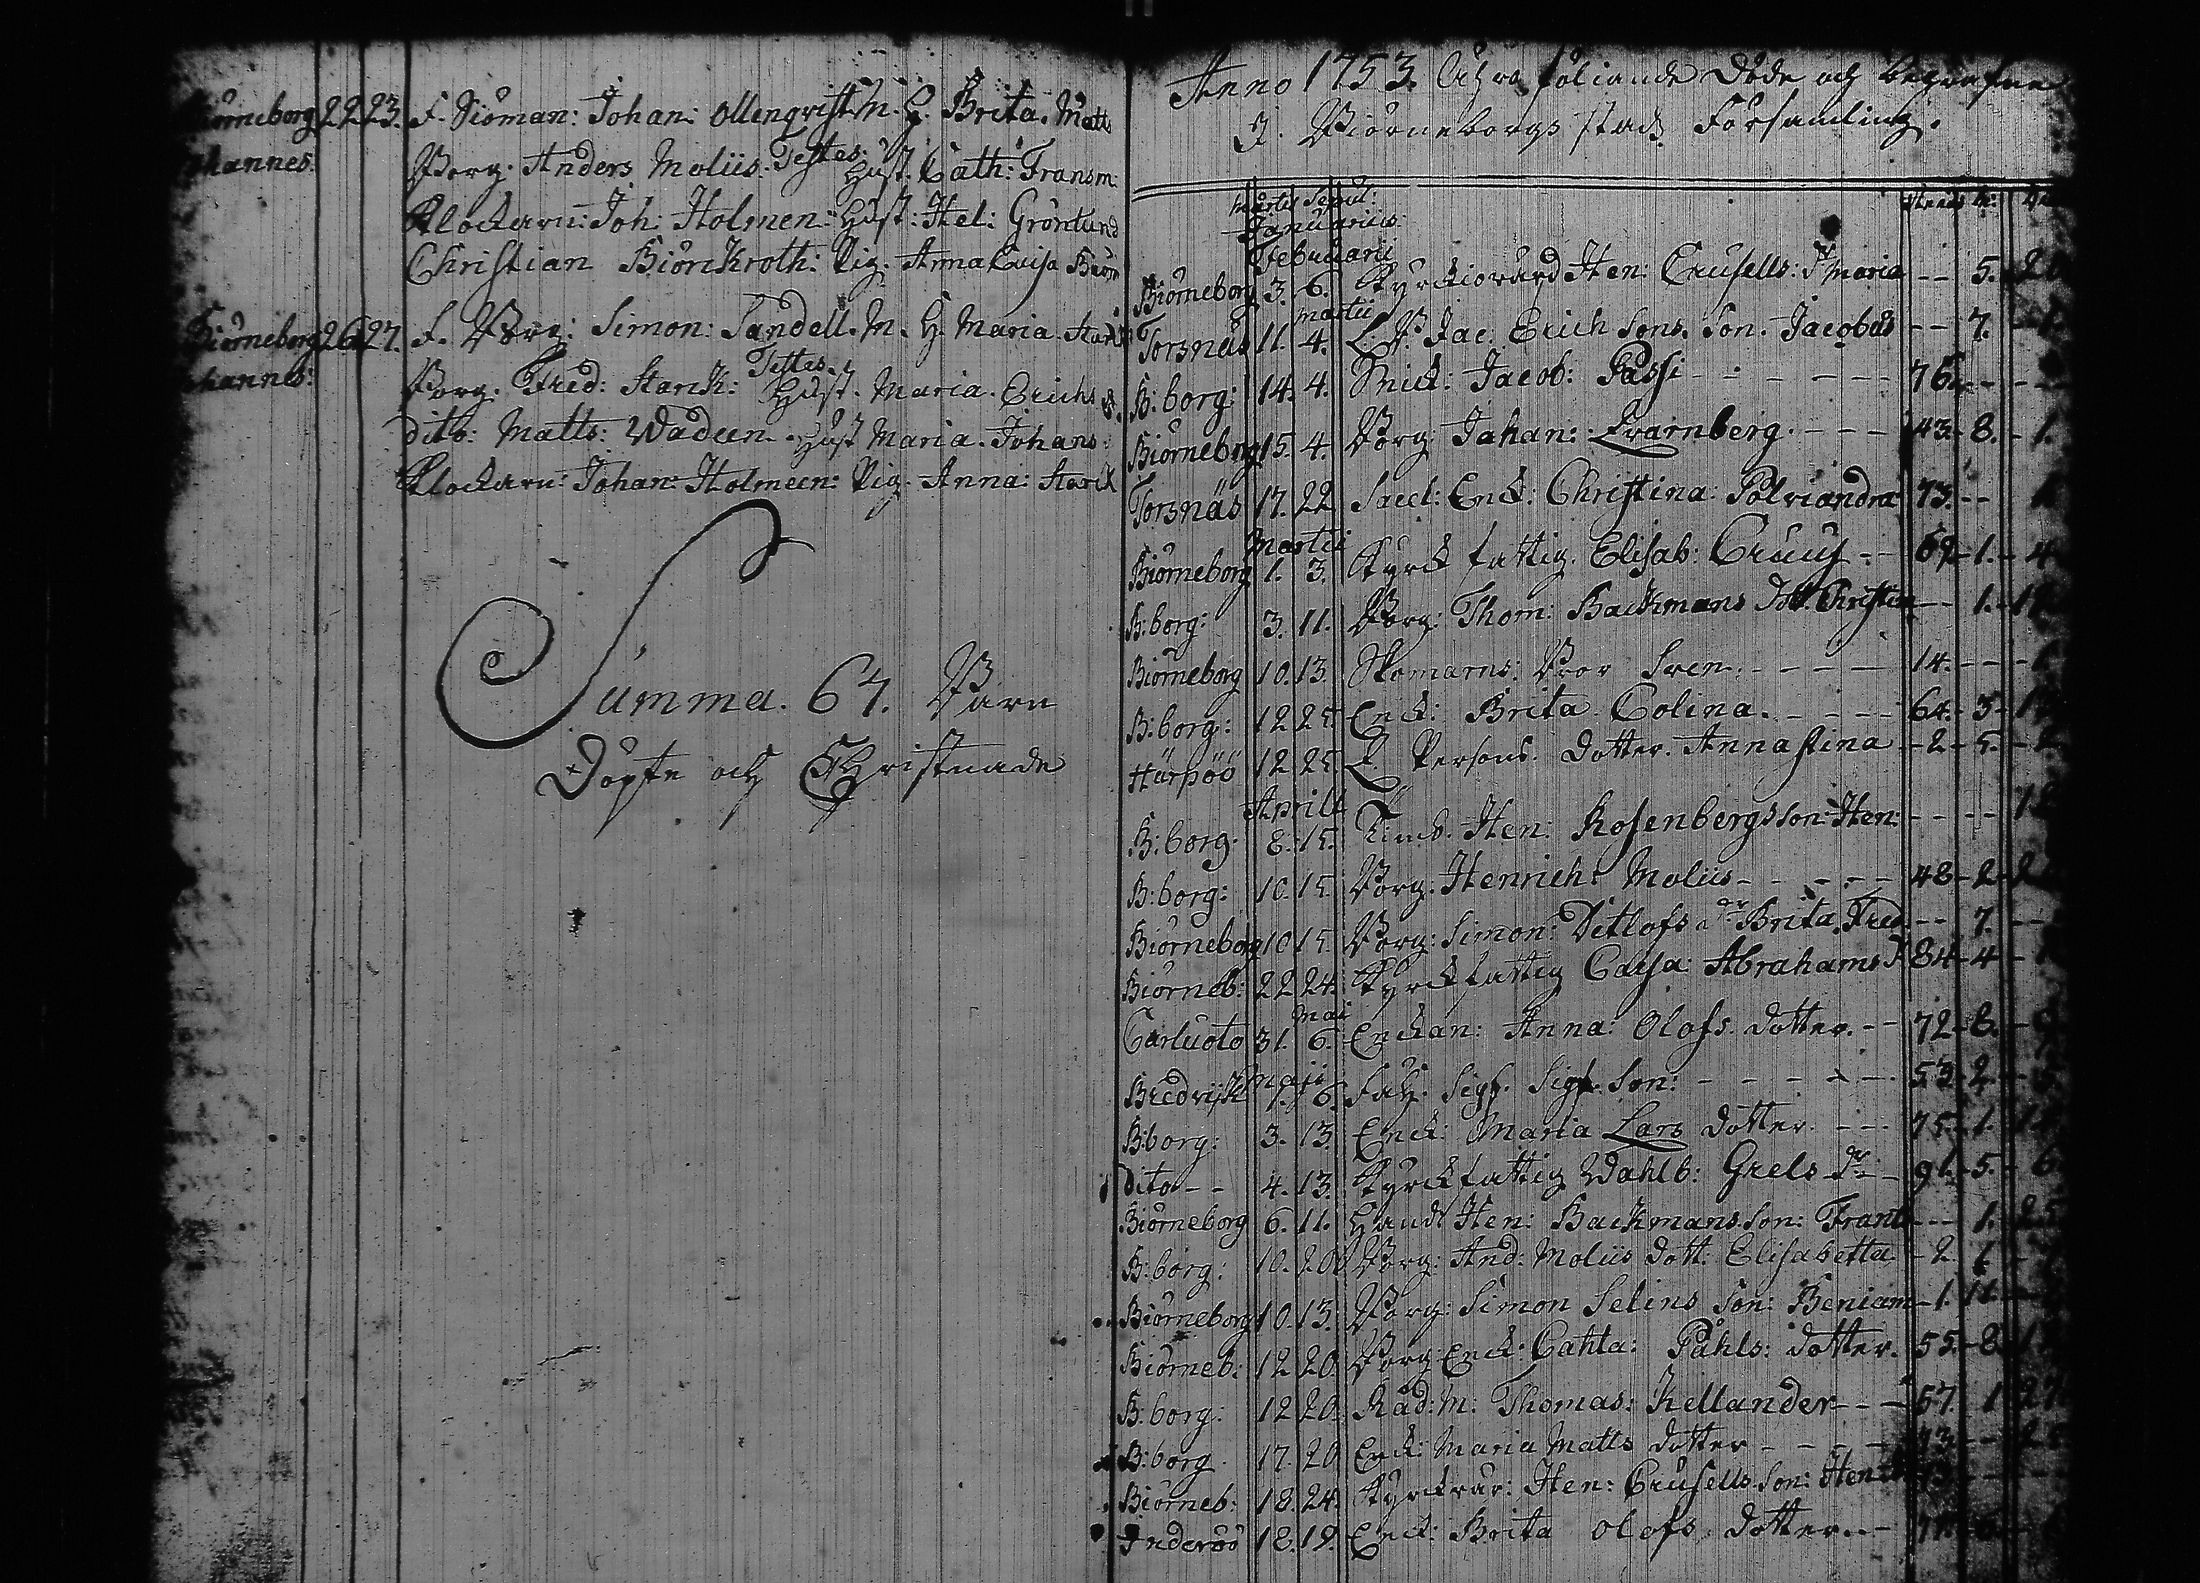 Biörneborg 22 23. F. Siöman: Johan: Ollenqvist M. H. Brita. Matts
Johannes. Borg. Anders Moliis. Testes: Hust. Cath: Fransm
Klockarn: Joh: Holmen: Hust: Hel: Grönlund
Christian Biörckroth: Pig. Anna Luisa Biörn
Biörneborg 26 27. F. Borg: Simon: Sandell. M. H. Maria. Starck
Johannes: Borg. Fred: Starck: Testes. Hust. Maria. Erichs
dito: Matts: Wadeen. Hust Maria. Johans:
Klockarn: Johan: Holmeen: Pig. Anna: Starck
Summa. 64. Barn
Döpte och Christnade
Anno 1753. Åhro föliande Döde och begrafne
I. Biörneborgs stads Församling.
Mortis Sepul:
Januarius.
Februarii
Biörneborg 3. 6. Kyrckiovärd Hen: Crusells: Dr Maria -- 5. 20
Martii
Torsnäs 11. 4. Jac. Erich Sons. Son. Jacobus -- 7.
B:borg: 14. 4. Smed: Jacob: Passi 76.
Biörneborg 15. 4. Borg: Johan: Qvarnberg. 43. 8. 1.
Torsnäs 17. 22 Sacel: Enck: Christina: Polviandra 73.
Martii
Biörneborg 1. 3. Kyrck fattig. Elisab: Cruus 69. 1. 4
B:borg: 3. 11. Borg: Thom: Backmans dot. Christin -- 1.
Biörneborg 10. 13. Skomarns: Bror Sven 14.
B:borg: 12 25. Enck: Brita Colina. 64. 3.
Härpöö 12 25. L. Persons. Dotter. Anna Stina 2. 5.
Aprill
B:borg. 8. 15. Hen: Rosenbergs son: Hen:
B:borg: 10. 15. Borg. Henrich: Moliis 48 2
Biörneborg 10 15. Borg: Simon: Ditlofs dr Brita. Fred -- 7.
Biörneb: 22 24. Kyrckfattig Caisa Abrahams d 84 4
Mai
Carluoto 31. 6. Enckan: Anna: Olofs. dotter. 72 8.
Maji
Bredvijk 1. 6. Sigf. Sigf. Son: 53. 2.
B:borg: 3. 13. Enck: Maria Lars dotter. 75. 1.
dito 4. 13. Kyrckfattig Wahlb: Grels dr 91. 5. 6
Biörneborg 6. 11. Handl Hen: Backmans. Son: Frants -- 1. 25
B:borg: 10. 20 Borg: And: Moliis dott: Elisabetta 2. 1
Biörneborg 10. 13. Borg: Simon Selins Son: Beniam 1. 11
Biörneb: 12 20. Borg: Enck: Cahta: Påhls: dotter. 55. 8.
B:borg: 12 20. Råd: M: Thomas: Kellander 57. 1 27
B:borg. 17. 20 Enck: Maria Matts dotter
Biörneb: 18. 24. Kyrckvär: Hen: Crusells. Son: Hen
Inderöö 18. 19. Enck: Brita Olofs. dotter.